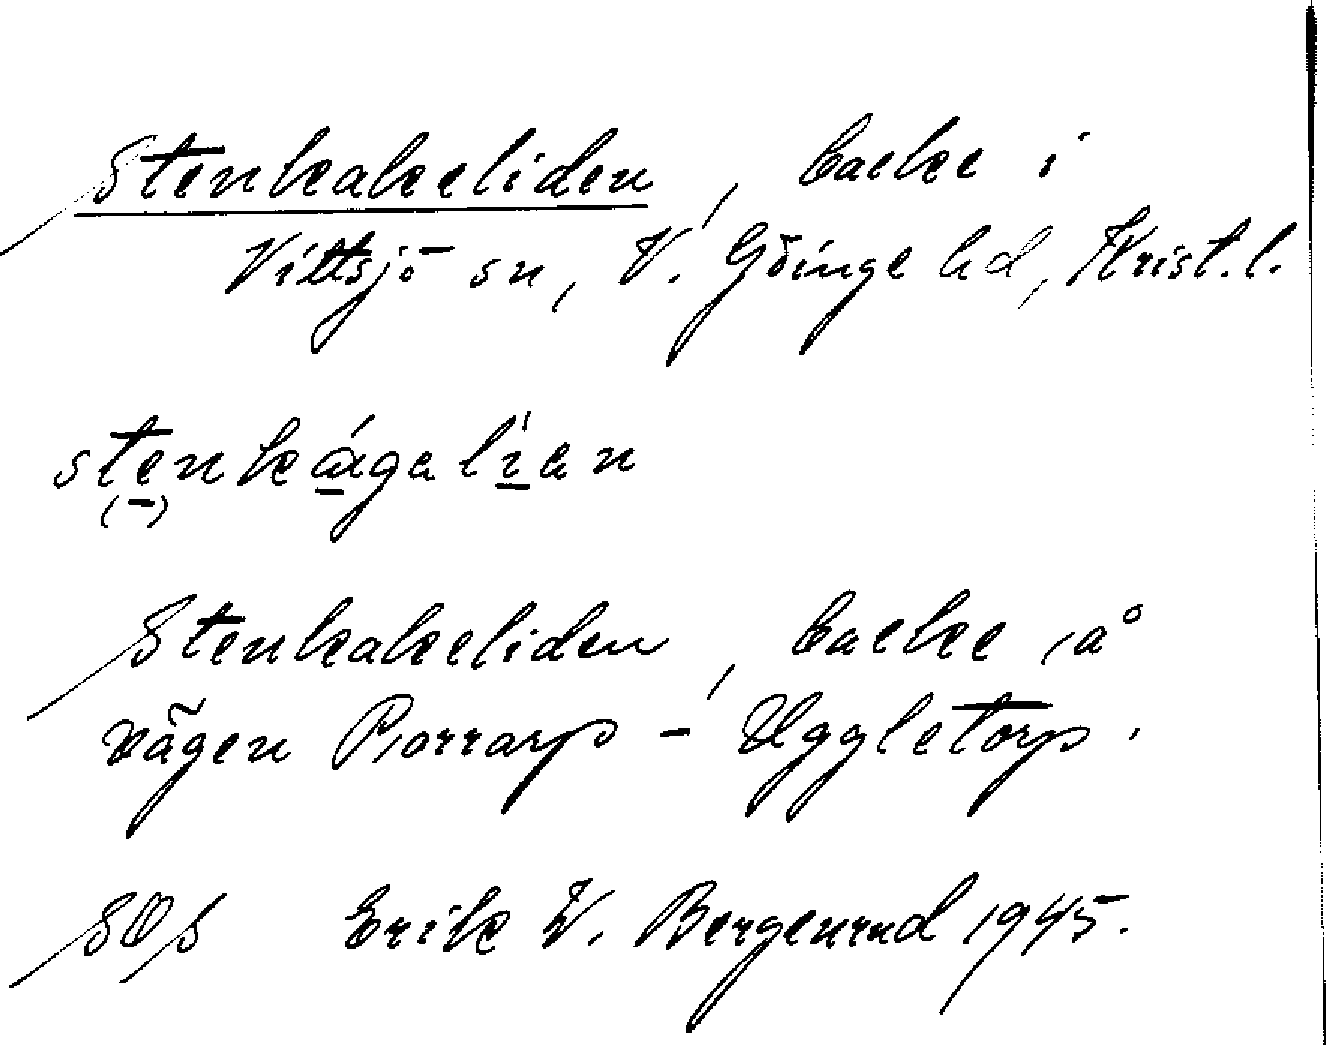 Stenkakeliden, backe i
Vittsjö sn, V. Göinge hd, Krist.l.
stenkágalían
(-)
Stenkakeliden, backe på
vägen Porrarp - Uggletorp.
SOS Erik W. Bergenrud 1945.